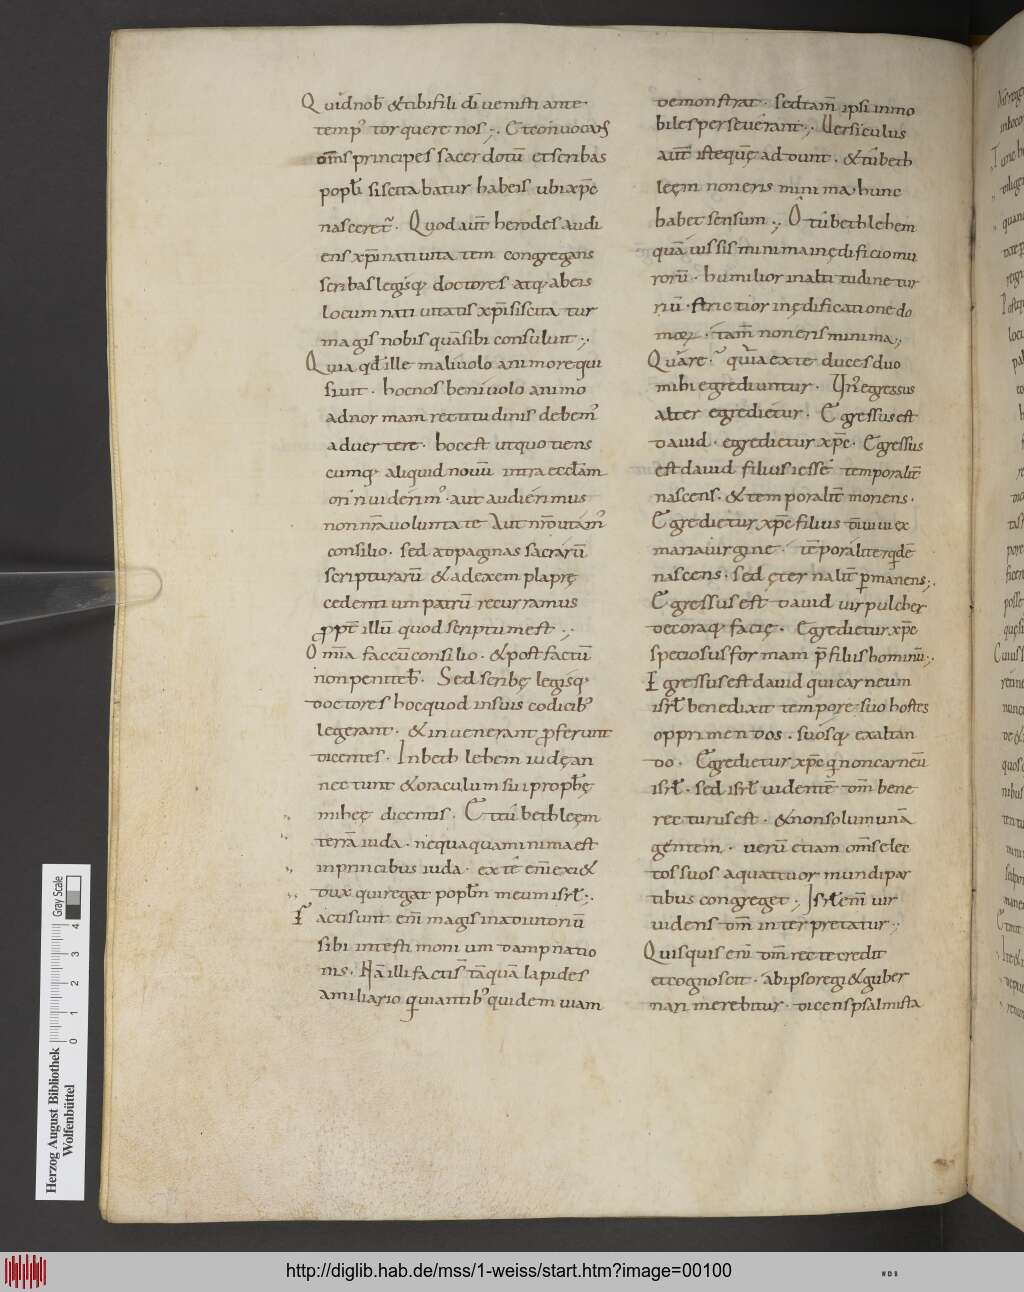 Quid nob̄ & tibi fili dī venisti ante
temp᾿ torquere nos ;. Et conuocans
om̄s principes sacerdotū et scribas
popl̄i siscitabatur habeis ubi xp̄c
nasceret᾿. Quod aut̄ herodes audi
ens xp̄i natiuitatem congregans
scribas legisq; doctores atq; abeis
locum natiuitatis xp̄i siscitatur
magis nobis quā sibi consuluit ;.
Quia qd̄ ille maliuolo animo requi
siuit. hoc nos beniuolo animo
ad normam rectitudinis debem᾿
aduertere. hoc est ut quotiens
cumq; aliquid nouū intra eccl̄am
oriri uiderim᾿. aut audierimus
non nr̄a uoluntate Aut nr̄o utam᾿
consilio. sed ad paginas sacrarū
scripturarū & ad exempla prę
cedentium patrū recurramus
propt̄ illū quod scriptum est ;.
Omīa fac cū consilio. & post factū
non peniteb̄. Sed scribę legisq;
doctores hoc quod in suis codicib᾿
legerant. & inuenerant proferunt
dicentes. In bethlehem iudę an
nectunt & oraculum sui prophę
miheę dicentis. Et tū bethleęm
terrā iuda. nequaquam minima est
in principibus iuda. ex te enī exi&
dux qui regat popl̄m meum isrl̄ ;.
Facti sunt enī magis in adiutoriū
sibi in testimonium dampnatio
nis. Nā illi facti s̄ tāquā lapides
amiliario qui antib᾿ quidem uiam
demonstrat. sed tam̄ ipsi inmo
biles perseuerant ;. Uersiculus
aut̄ iste quę̄ addunt. & tū beth
leęm non eris minima, hunc
habet sensum ;. O tū bethlehem
quā uis sis minima in ędificio mu
rorū. humilior in altitudine tur
riū. strictior in ędificatione do
morum. tam̄ non eris minima ;.
Quare.᾿ quia ex te duces duo
mihi egrediuntur. Un᾿ egressus
alter egredietur. Egressus est
dauid. egredietur xp̄c. Egressus
est dauid filius iesse temporalit̄
nascens. & temporalit̄ moriens.
Egredietur xp̄c filius dī uiui ex
maria uirgine. tēporaliter qdē
nascens. sed ęternalit̄ permanens ;.
Egressus est dauid uir pulcher
decoraq; facie. Egredietur xp̄c
speciosus formam p̄ filius hominū ;.
Egressus est dauid qui carneum
isrl̄ benedixit tempore suo hostes
opprimendos. suosq; exaltan
do. Egredietur xp̄c qi non carneū
isrl̄. sed isrl̄ uidentē dm̄ bene
recturus est. & non solum unā
gentem. uerū etiam om̄s elec
tos suos a quattuor mundi par
tibus congreget ;. Isrl̄ enī uir
uidens dm̄ interpretatur ;.
Quisquis enī dm̄ recte credit
et cognoscit. ab ipso regi & guber
nari merebitur. dicens psalmista
Herzog August Bibliothek
Wolfenbüttel
0 1 2 3 4
Gray Scale
http://diglib.hab.de/mss/1-weiss/start.htm?image=00100